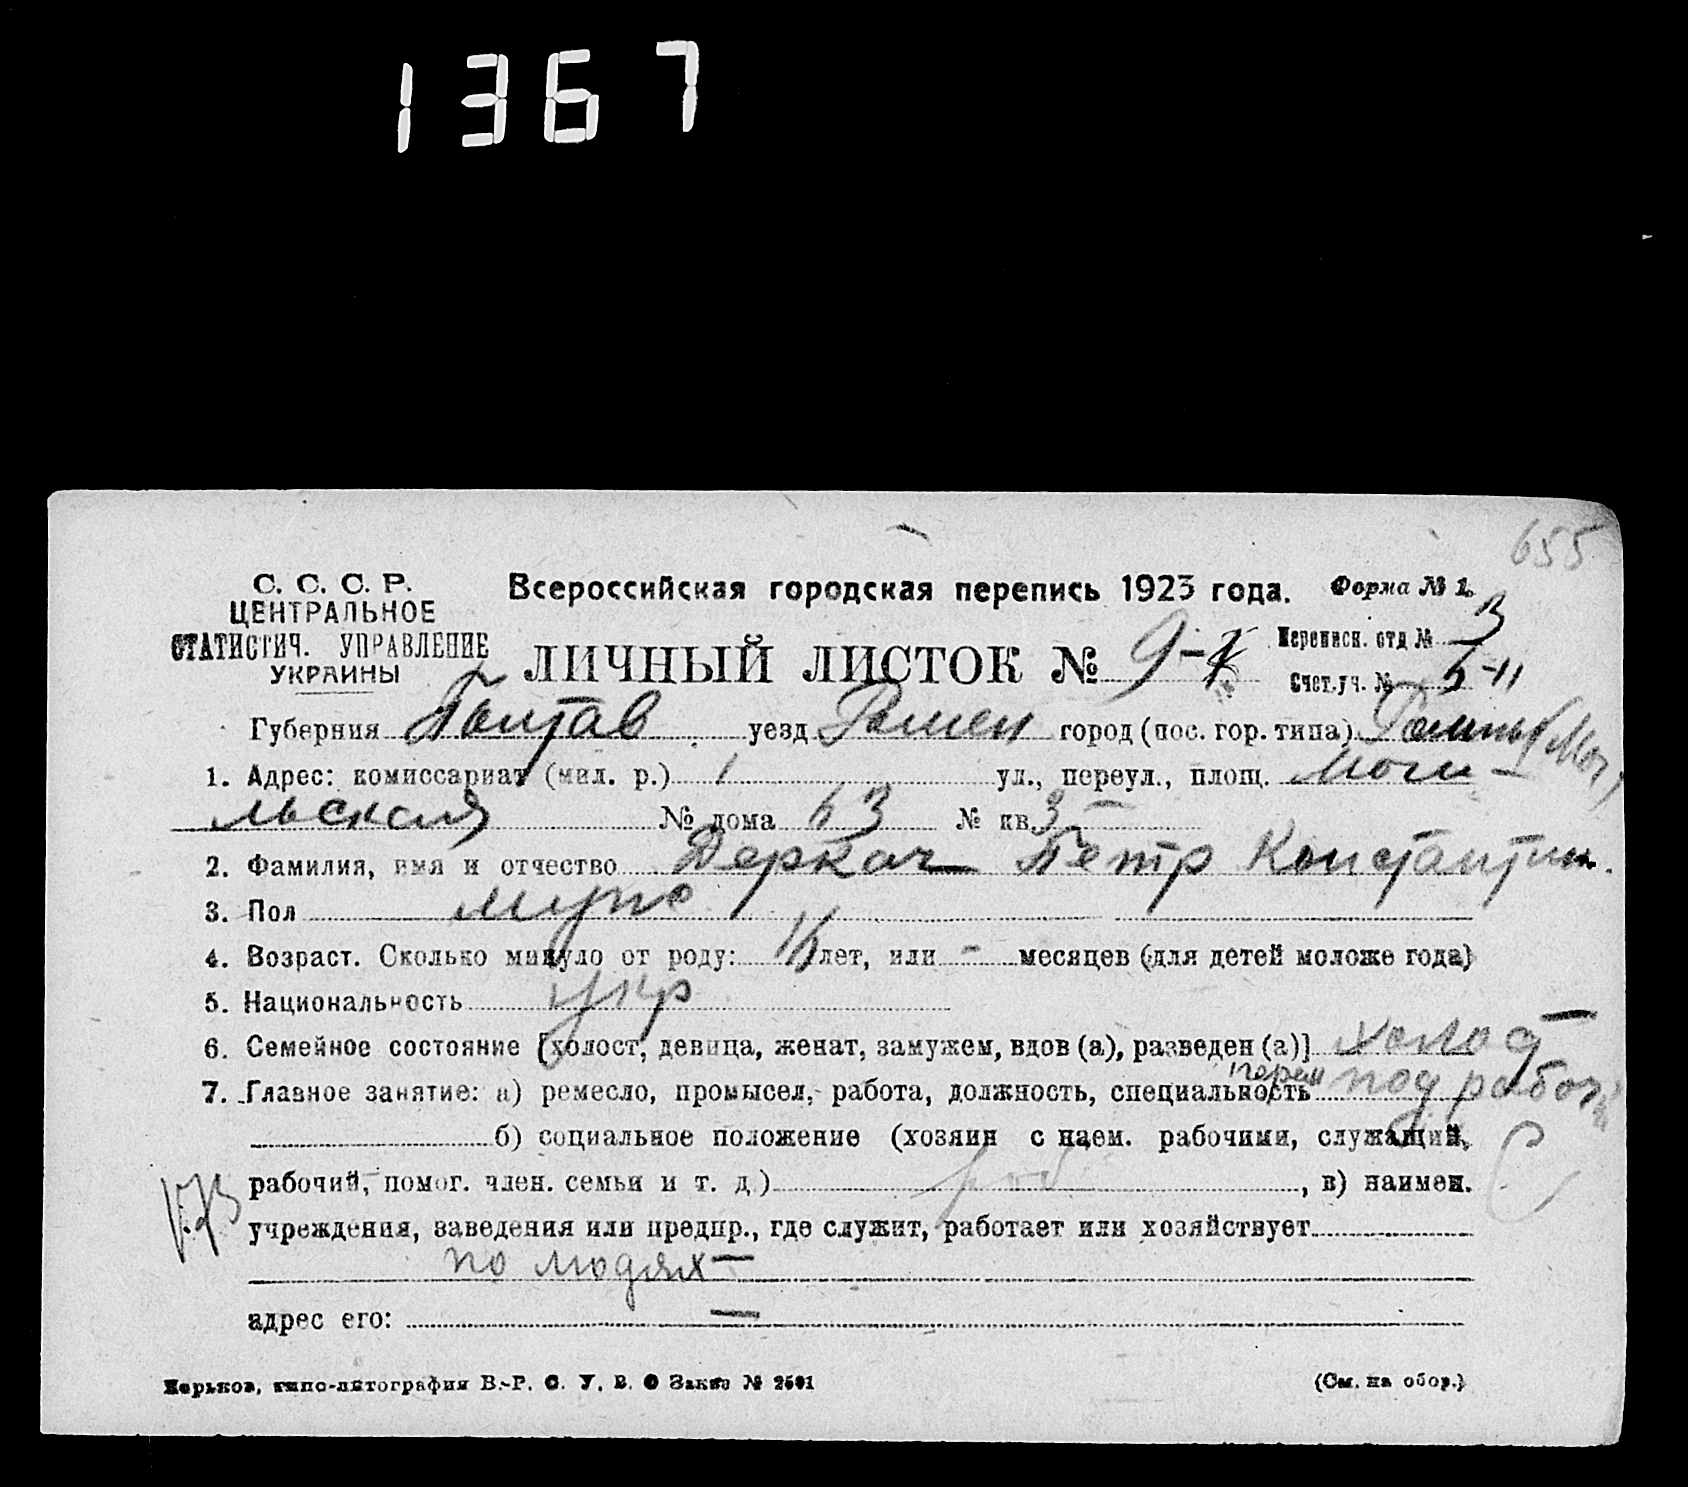 1367
655
С. С. С. Р.
ЦЕНТРАЛЬНОЕ
СТАТИСТИЧ. УПРАВЛЕНИЕ
УКРАИНЫ
Всероссийская городская перепись 1923 года.
Форма № 1.
ЛИЧНЫЙ ЛИСТОК № 9-
Переписн. отд № 3
Счет.уч. №
Губерния Полтав уезд Ромен город (пос. гор. типа) Ромны
1. Адрес: комиссариат (мил. р.) 1 ул., переул., площ. Моги-
льская № дома 63 № кв. 3
2. Фамилия, имя и отчество Деркач Петр Константин.
3. Пол муж
4. Возраст. Сколько минуло от роду: 16 лет, или - месяцев (для детей моложе года)
5. Национальность укр
6. Семейное состояние [холост, девица, женат, замужем, вдов (а), разведен (а)] холос
7. Главное занятие: а) ремесло, промысел, работа, должность, специальность под
б) социальное положение (хозяин с наем. рабочими, служащий,
рабочий, помог. член. семьи и т. д.) раб , в) наимен.
учреждения, заведения или предпр., где служит, работает или хозяйствует
по людях —
адрес его: —
Харьков, типо-литография В.-Р. С. У. В. О Заказ № 2501
(См. на обор.)